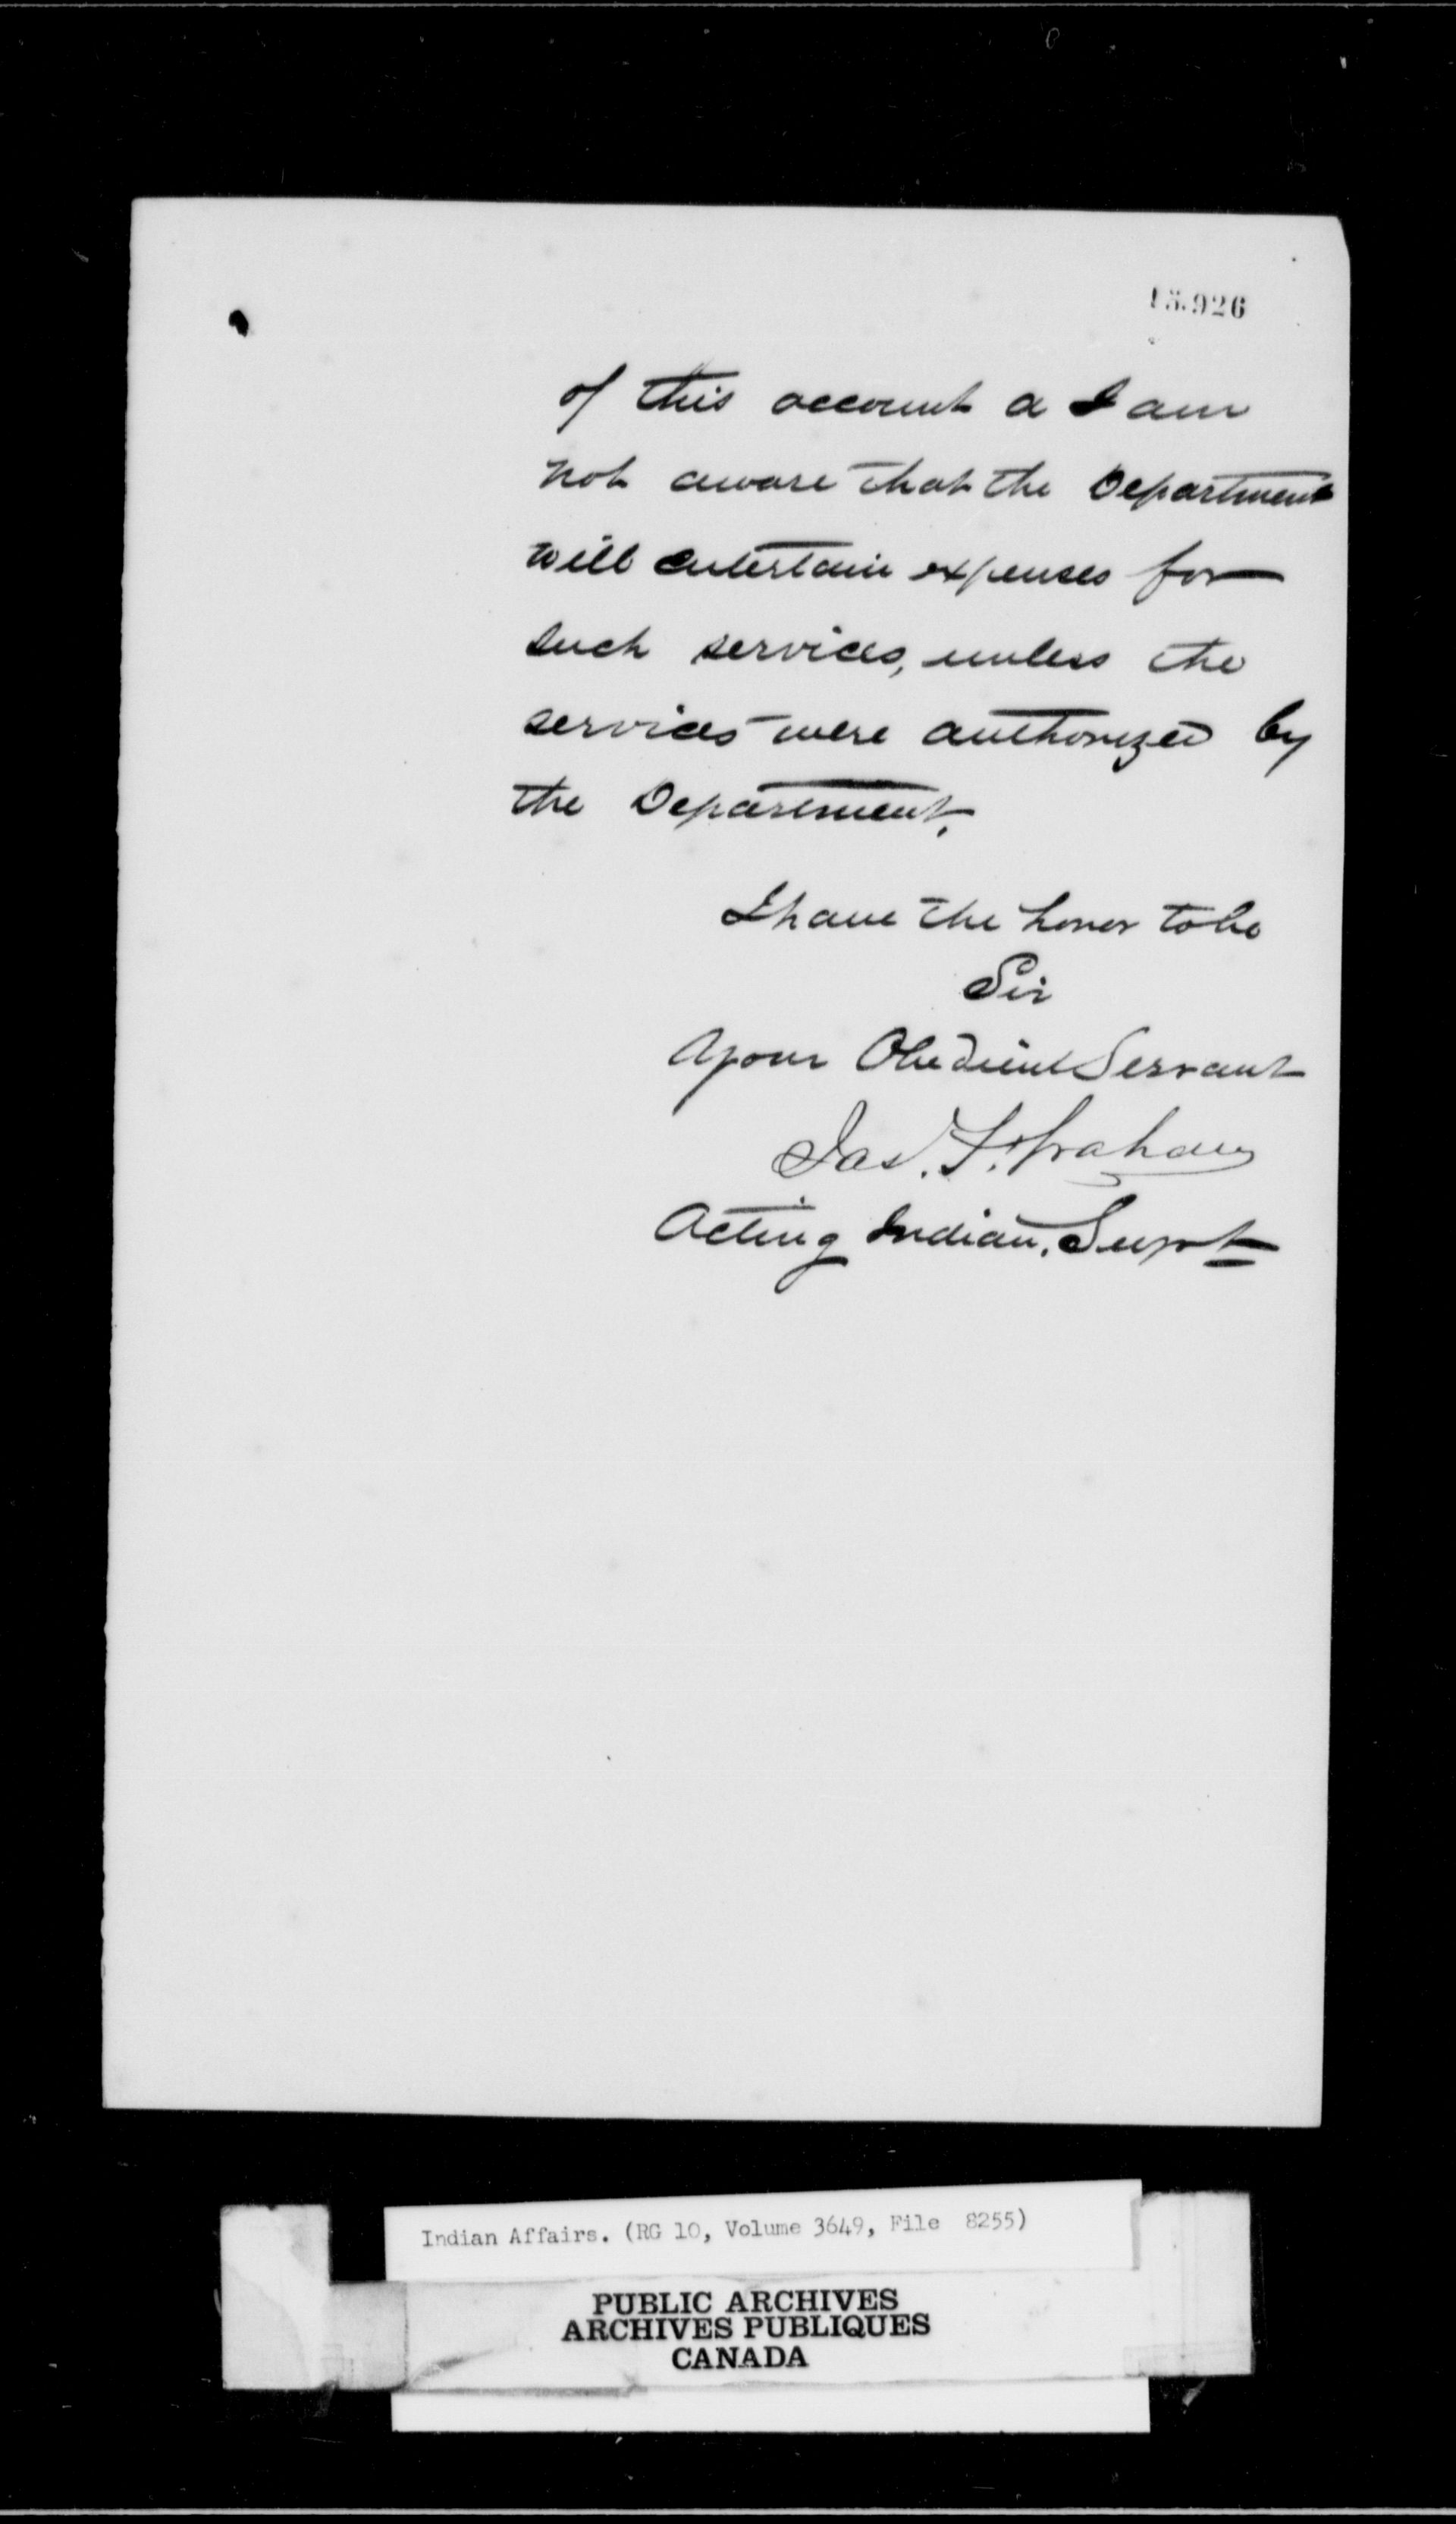 15.926
of this account a I am
not aware that the Department
will entertain expenses for
such services, unless the
services were authorized by
the Department.
I have the honor to be
Sir
Your Obedient Servant
Jas. F. Graham
Acting Indian. Supt
Indian Affairs. (RG 10, Volume 3649, File 8255)
PUBLIC ARCHIVES
ARCHIVES PUBLIQUES
CANADA